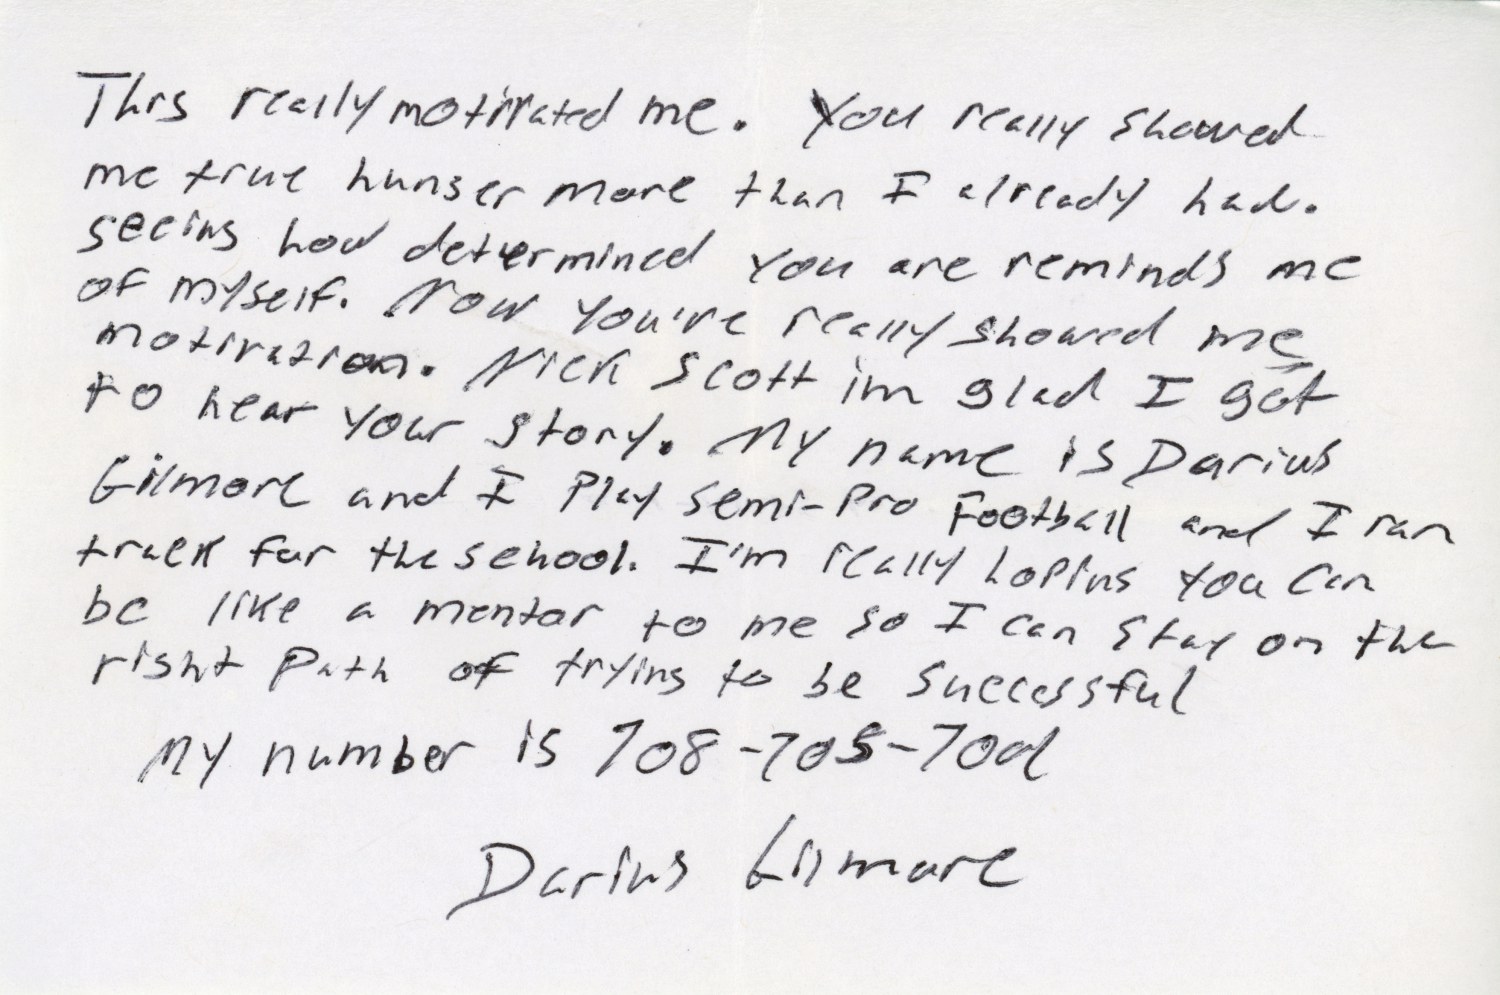 This really motivated me. You really showed
me true hunger more than I already had.
seeing how determined you are reminds me
of myself. Now you're really showed me
motivation. Nick Scott im glad I got
to hear your story. My name is Darius
Gilmore and I Play semi-Pro Football and I ran
track for the school. I'm really hoping you can
be like a mentor to me so I can stay on the
right Path of trying to be successful
My number is 708-705-
Darius Gilmore